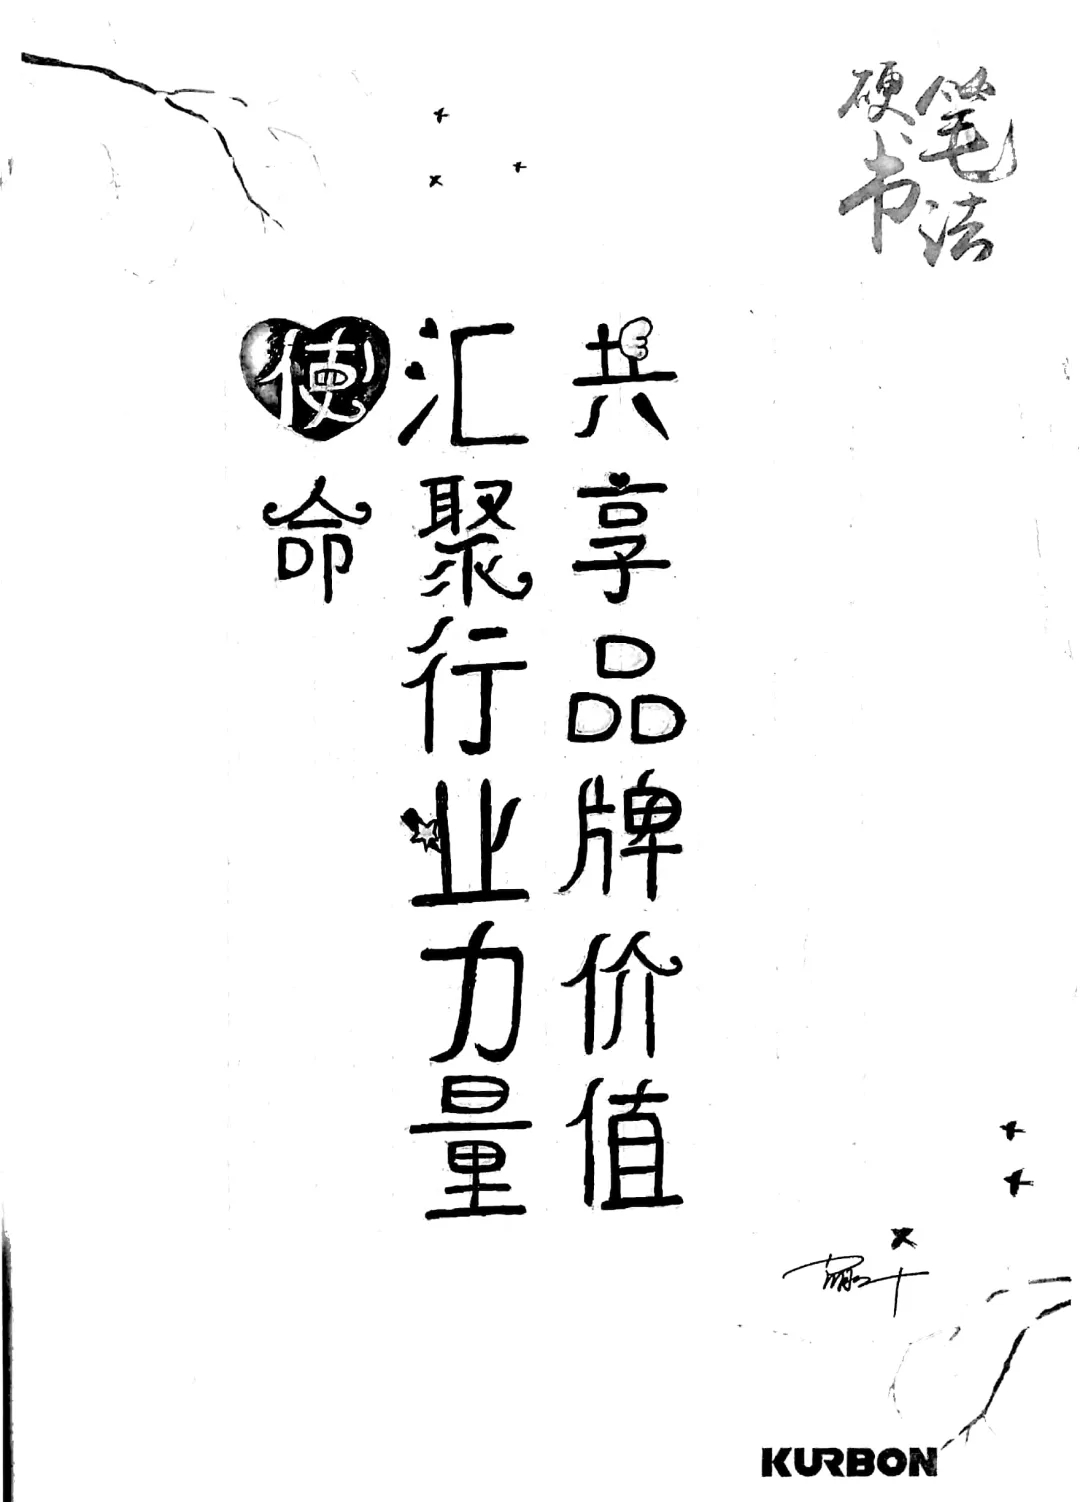 硬笔书法
共享品牌价值
汇聚行业力量
使命
KURBON